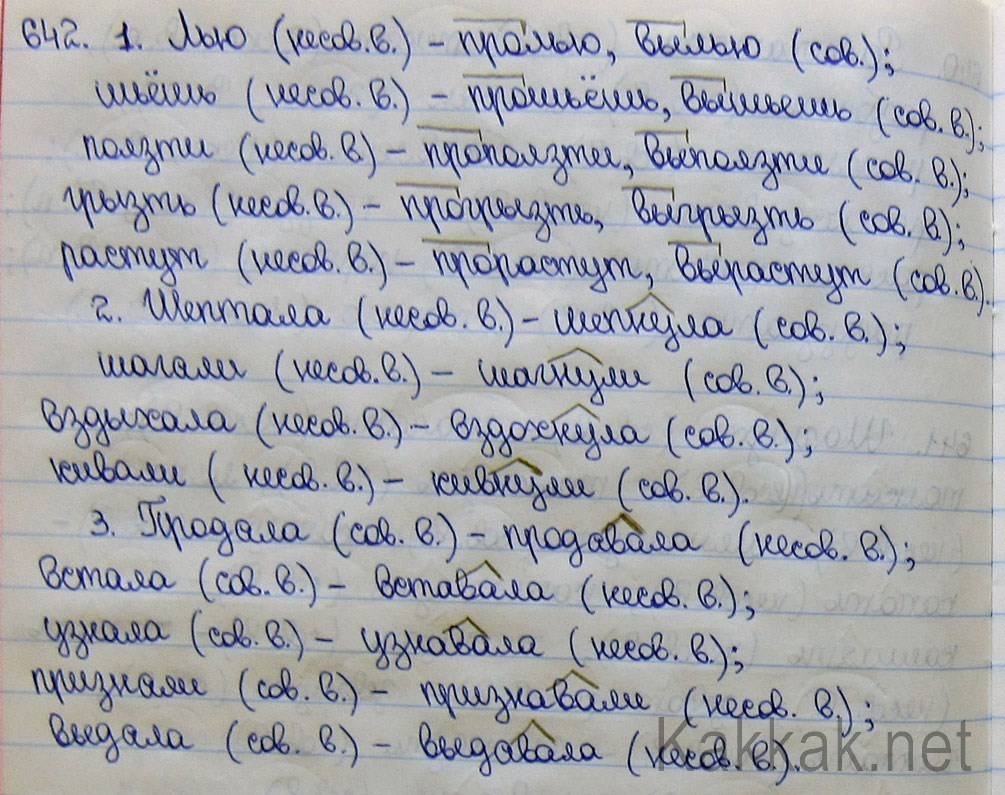 642. 1. Лью (несов.в.) – пролью, вылью (сов.);
шьёшь (несов. в.) – прошьёшь, вышьешь (сов. в.);
ползти (несов. в.) – проползти, выползти (сов. в.);
грызть (несов. в.) – прогрызть, выгрызть (сов. в.);
растут (несов. в.) – прорастут, вырастут (сов. в.).
2. Шептала (несов. в.) – шепнула (сов. в.);
шагали (несов. в.) – шагнули (сов. в.);
вздыхала (несов. в.) – вздохнула (сов. в.);
кивали (несов. в.) – кивнули (сов. в.).
3. Продала (сов. в.) – продавала (несов. в.);
встала (сов. в.) – вставала (несов. в.);
узнала (сов. в.) – узнавала (несов. в.);
признали (сов. в.) – признавали (несов. в.);
выдала (сов. в.) – выдавала (несов. в.).
Kakkak.net